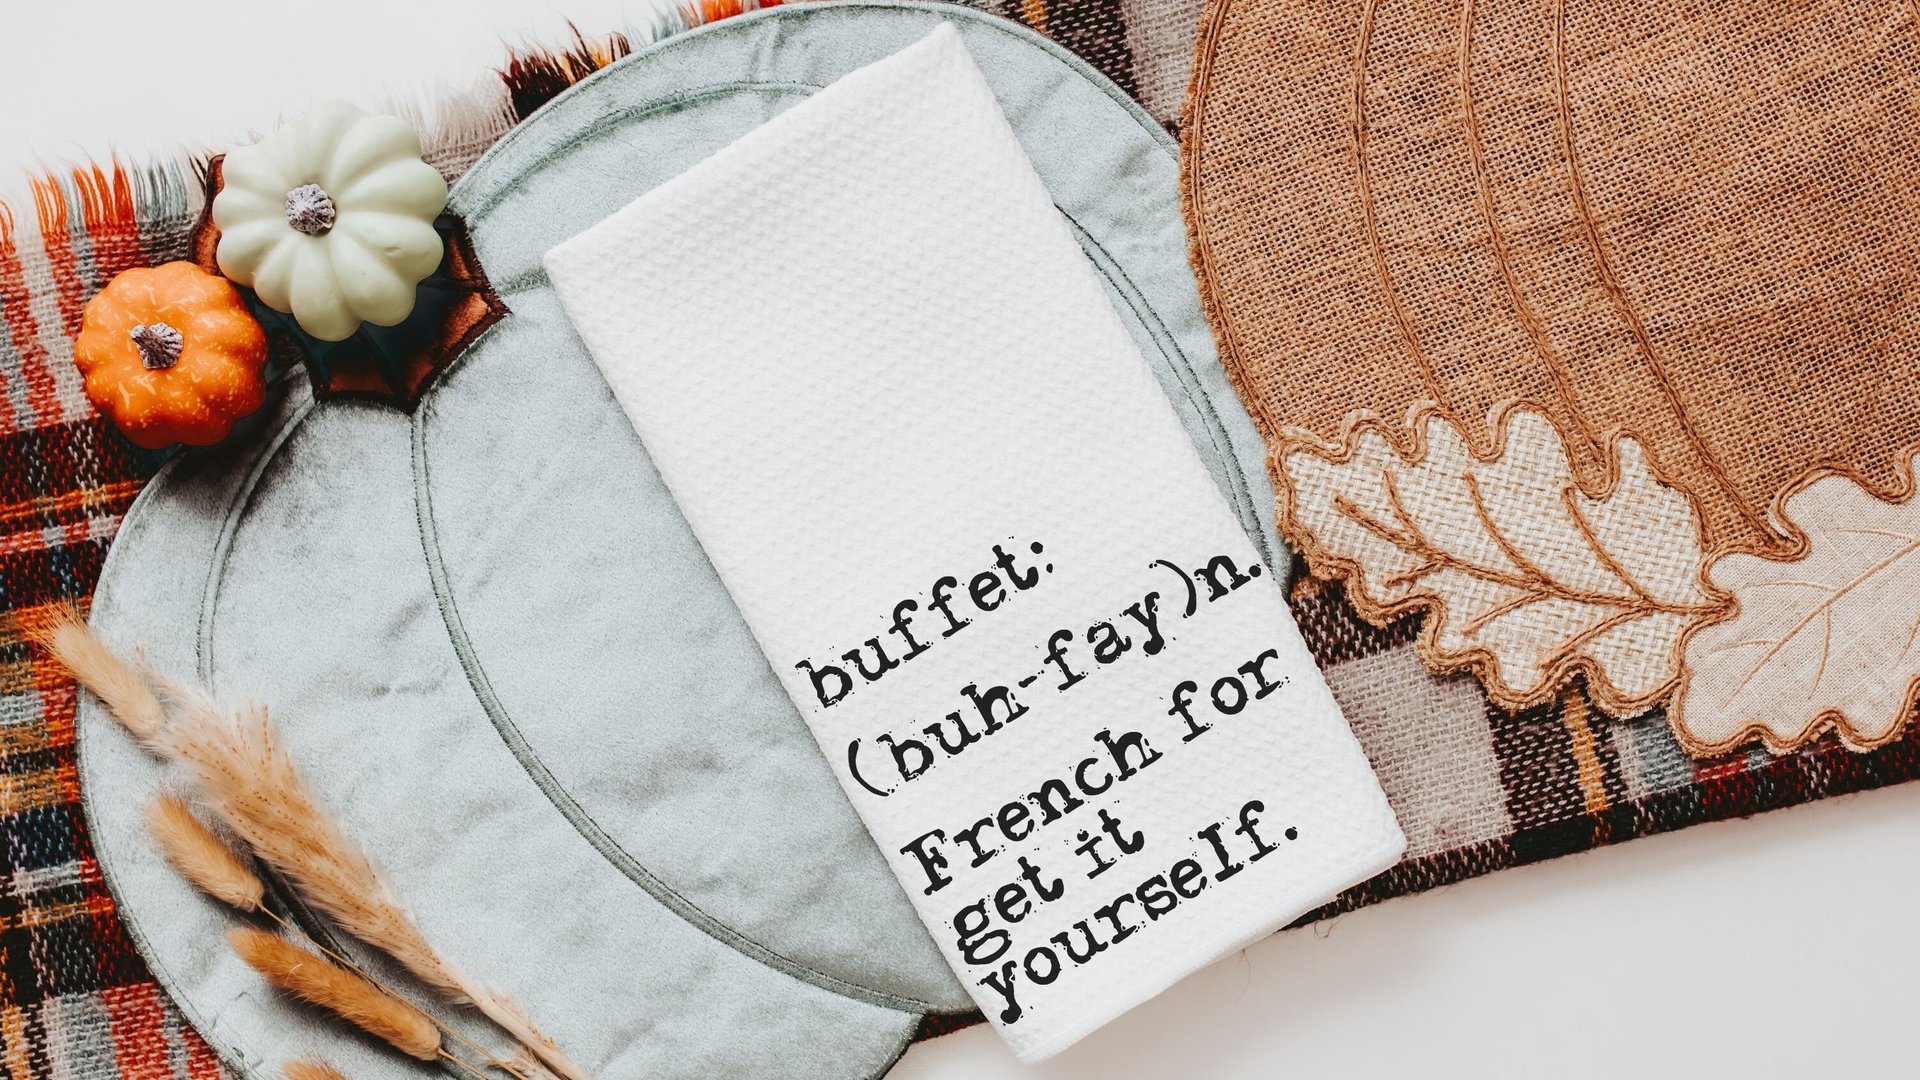 buffet:
(buh-fay)n.
French for
get it
yourself.